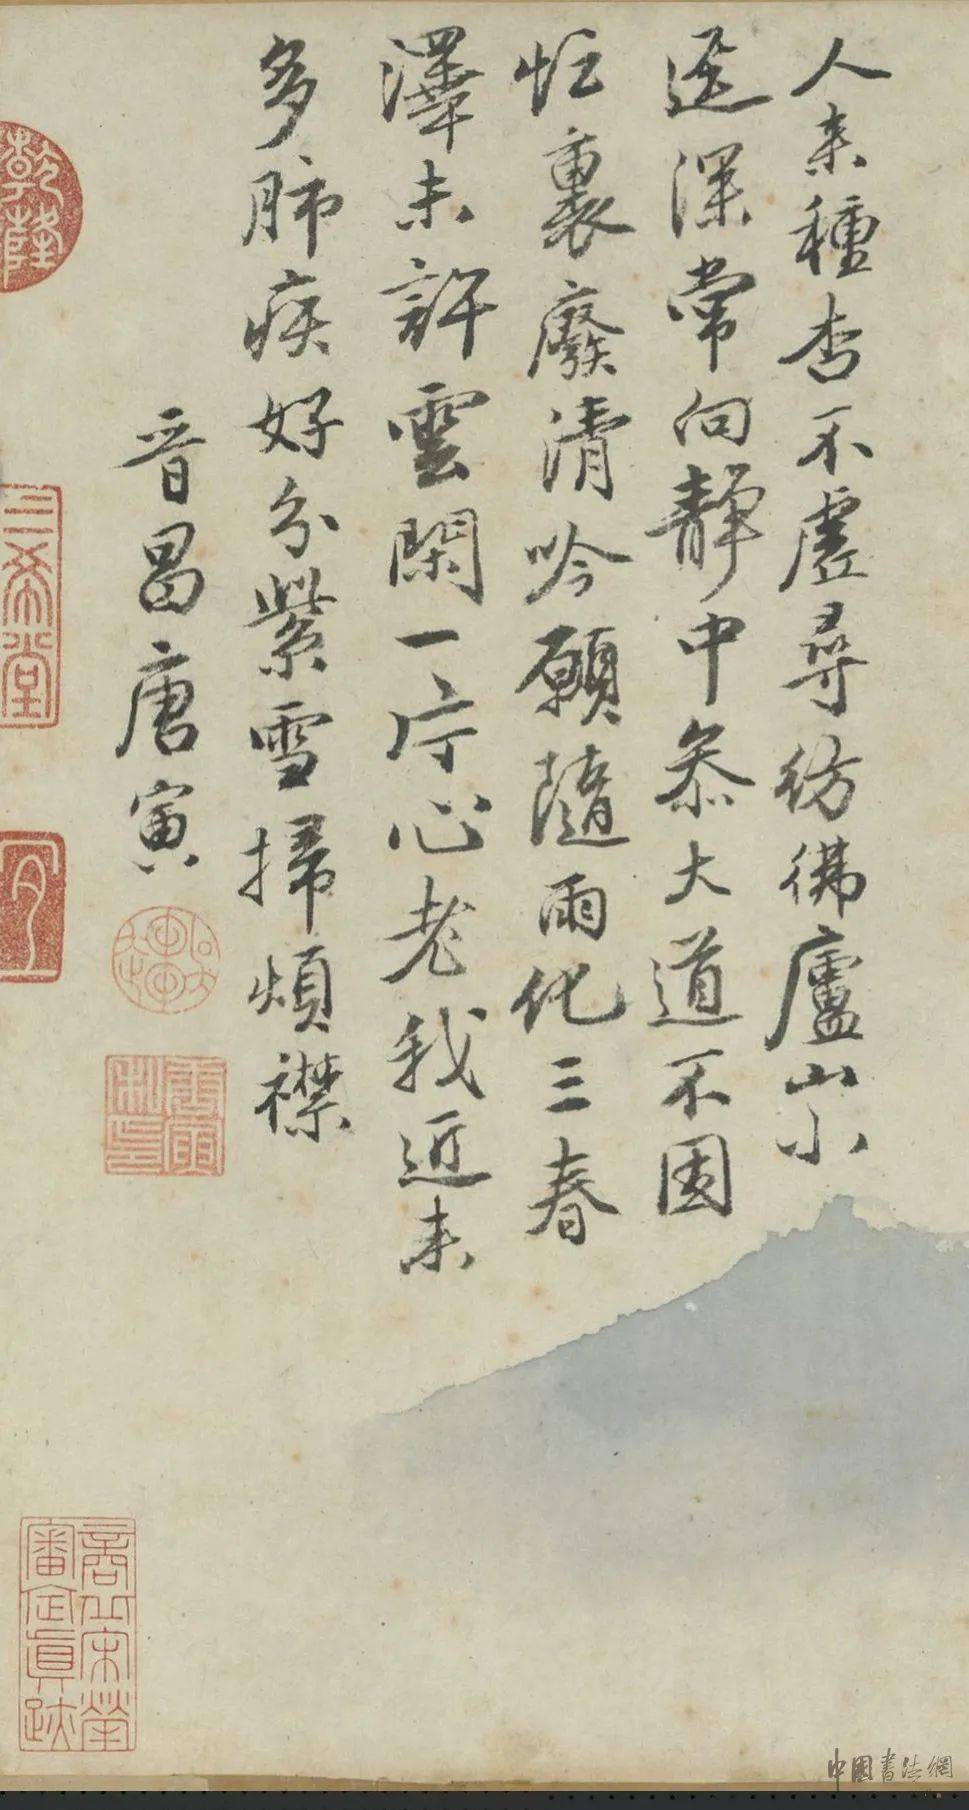 人来種杏不虛尋彷彿廬山小
逕深常向靜中參大道不因
忙裏廢清吟願隨雨化三春
澤未許雲閑一片心老我近来
多肺疾好分紫雪掃煩襟
晉昌唐寅
乾隆
三希堂
商丘宋犖
審定真跡
中国书法網